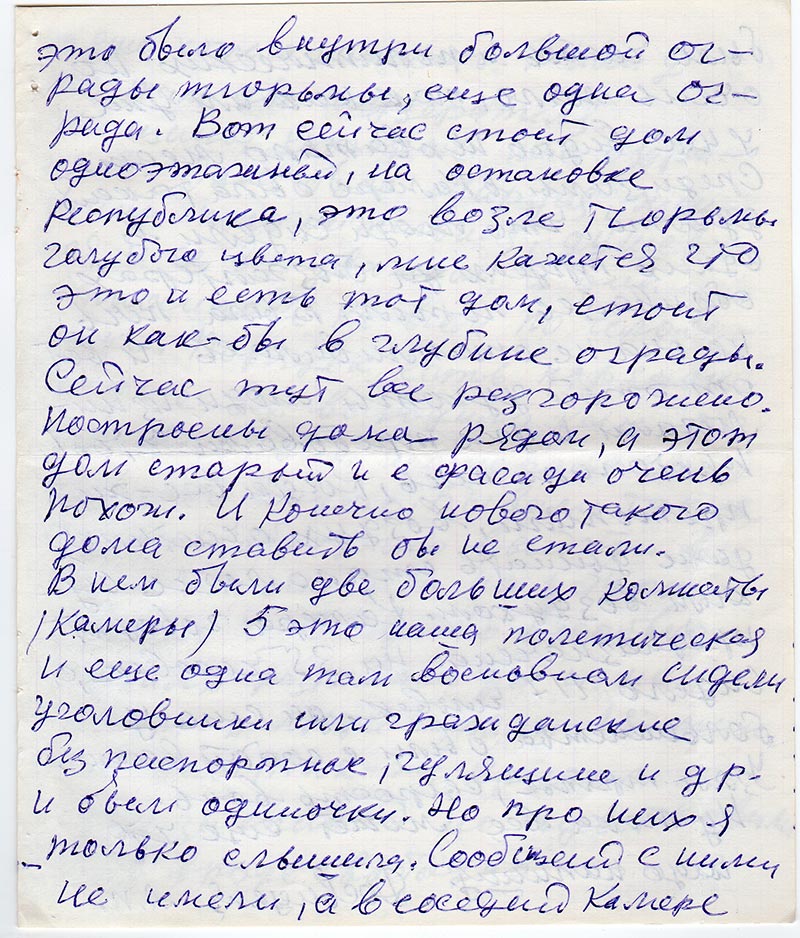 это было внутри большой ог-
рады тюрьмы, еще одна ог-
рада. Вот сейчас стоит дом
одноэтажный, на остановке
Республика, это возле тюрьмы
голубого цвета, мне кажется что
это и есть тот дом, стоит
он как-бы в глубине ограды.
Сейчас тут все разгорожено.
Построены дома рядом, а этот
дом старый и с фасада очень
похож. И конечно нового такого
дома ставить бы не стали.
В нем были две больших комнаты
(камеры) 5 это наша политическая
и еще одна там восновном сидели
уголовники или гражданские
без паспортные, гулящие и др.
и были одиночки. Но про них я
только слышала. Сообщений с ними
не имели, а в соседний камере